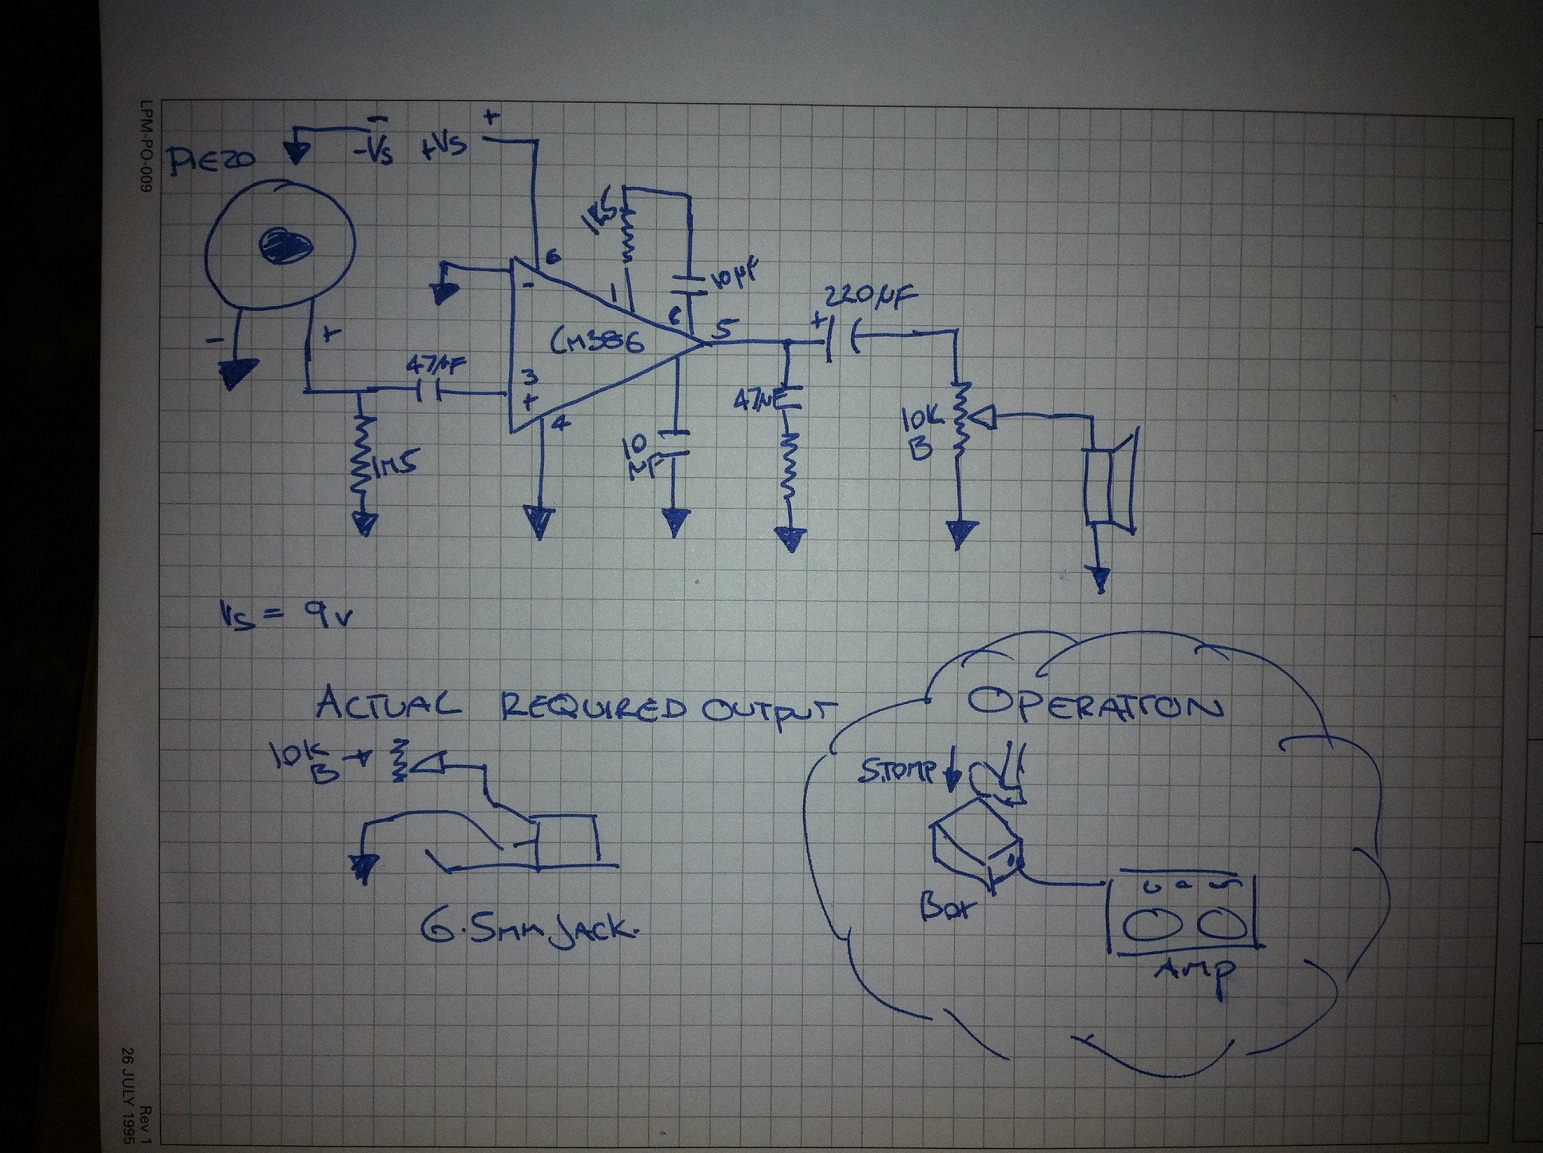 LPM-PO-009
PIEZO
-
-Vs
+Vs
+
6
-
1K5
1
10µF
8
LM386
5
220µF
+
-
+
47µF
3
+
4
1M5
10
µF
47µF
10K
B
Vs = 9v
ACTUAL REQUIRED OUTPUT
10K
B
6.5mm JACK.
OPERATION
STOMP
BOX
AMP
Rev 1
26 JULY 1995